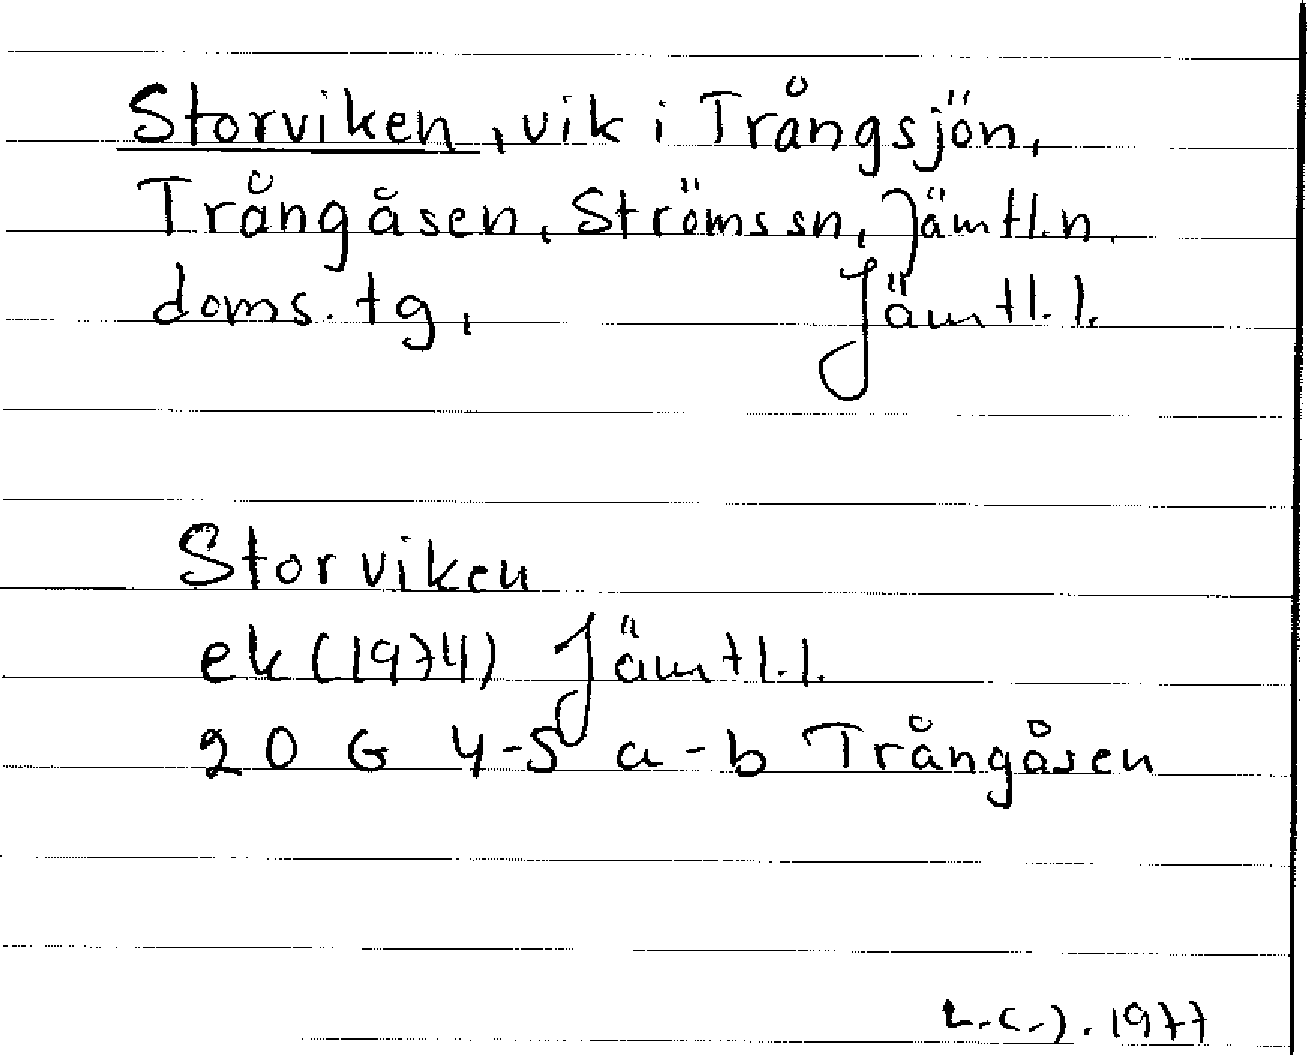 Storviken, vik i Trångsjön,
Trångåsen, Ströms sn, Jämtl. n.
doms. tg, Jämtl. l.
Storviken
ek (1974) Jämtl. l.
20 G 4-5 a-b Trångåsen
1977